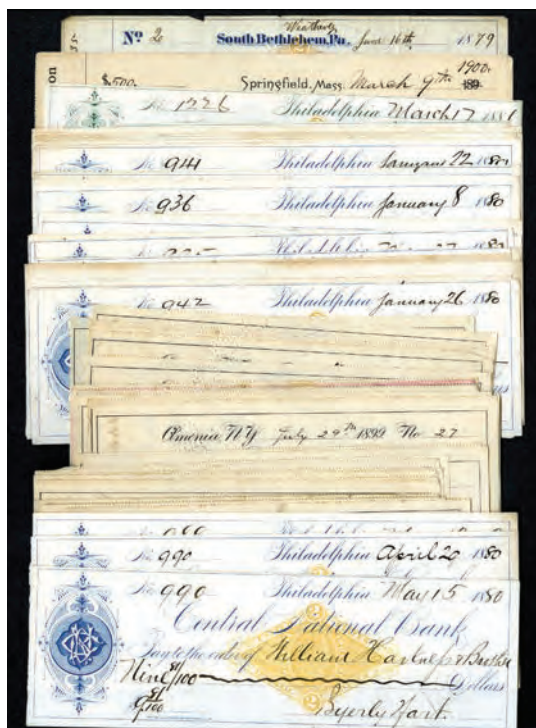 No. 2 South Bethlehem, Pa. Weatherly June 16th 1879
on
$500. Springfield, Mass. March 9th 1900. 189
No. 1226 Philadelphia March 17 1881
No. 941 Philadelphia January 22 1880
No. 936 Philadelphia January 8 1880
Philadelphia 1880
No. 942 Philadelphia January 26 1880
Dollars
Amenia, N.Y. July 29th 1899 No. 27
No. 990 Philadelphia April 20 1880
No. 990 Philadelphia May 15 1880
Central National Bank
Pay to the order of William
Nine 51/100 Dollars
$9 51/100 Byerly Hart.
2
2